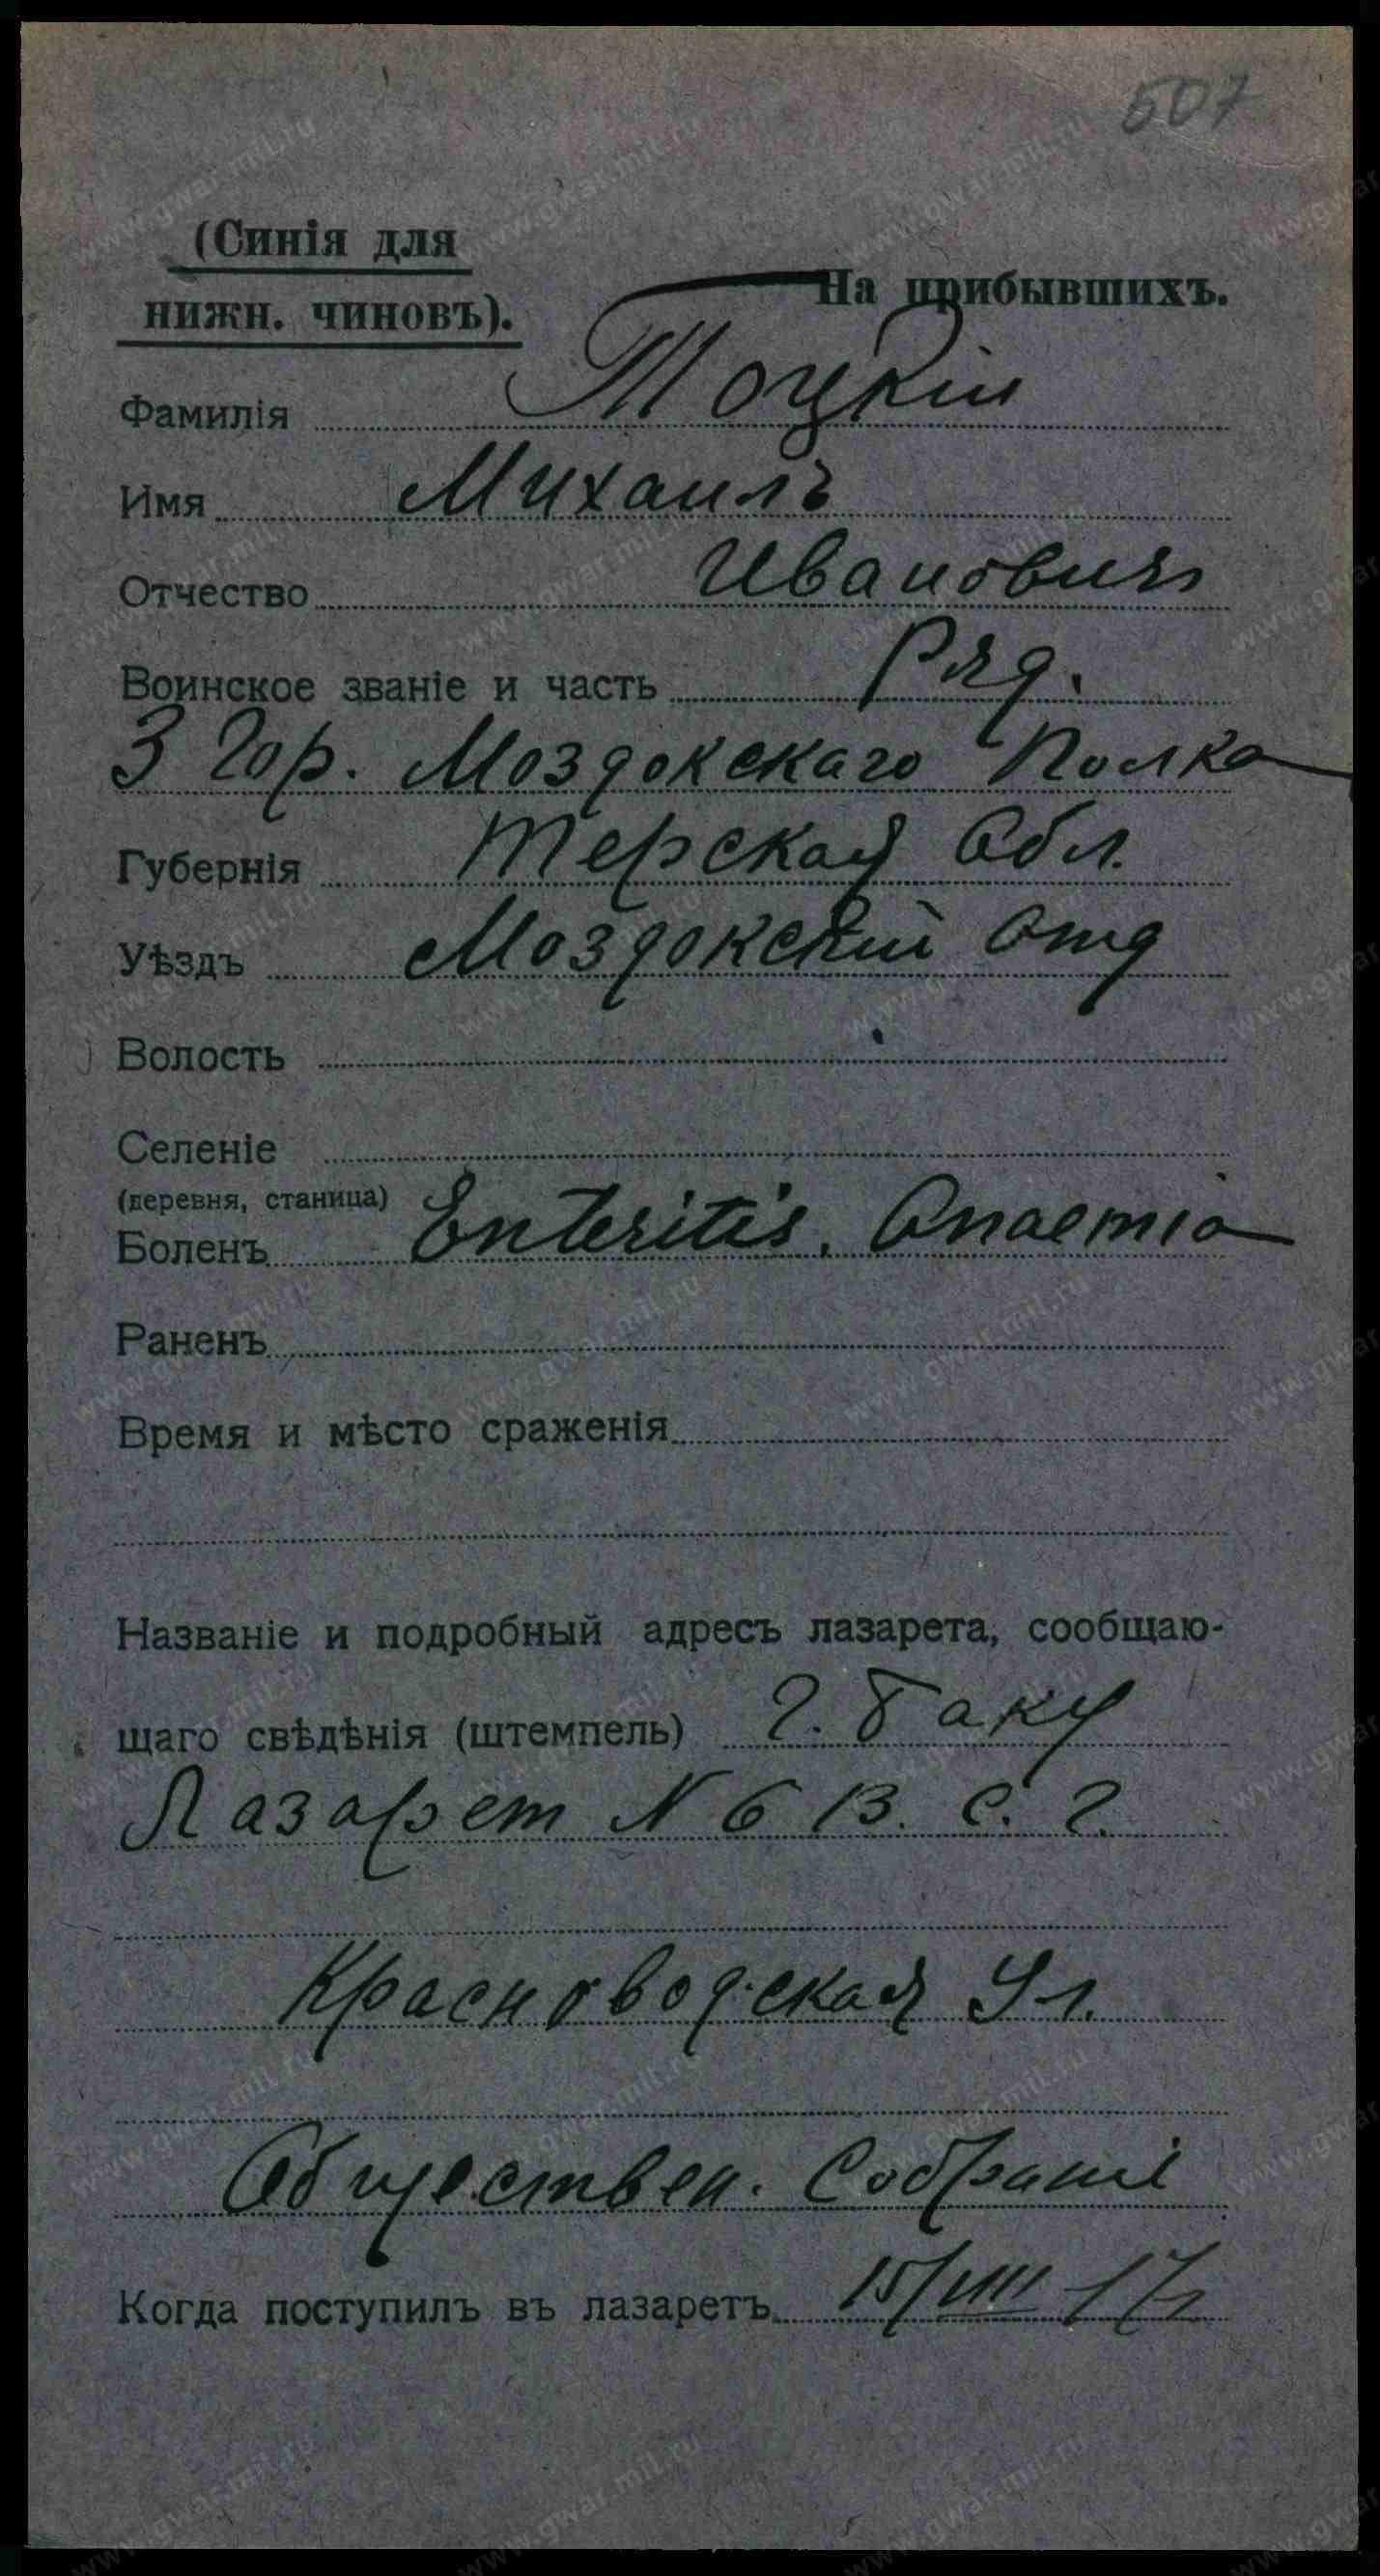 507
(Синія для
нижн. чиновъ).
На прибывшихъ.
Фамилія Тоцкій
Имя Михаилъ
Отчество Ивановичъ
Воинское званіе и часть Ряд.
3 Гор. Моздокскаго Полка
Губернія Терская Обл.
Уѣздъ Моздокский Отд
Волость
Селеніе
(деревня, станица)
Боленъ Enteritis, Anaemia
Раненъ
Время и мѣсто сраженія
Названіе и подробный адресъ лазарета, сообщаю-
щаго свѣдѣнія (штемпель) г. Баку
Лазарет N 6 В. С. Г.
Красноводская Ул.
Обществен. Собраніе
Когда поступилъ въ лазаретъ 15/VIII 17 г
www.gwar.mil.ru